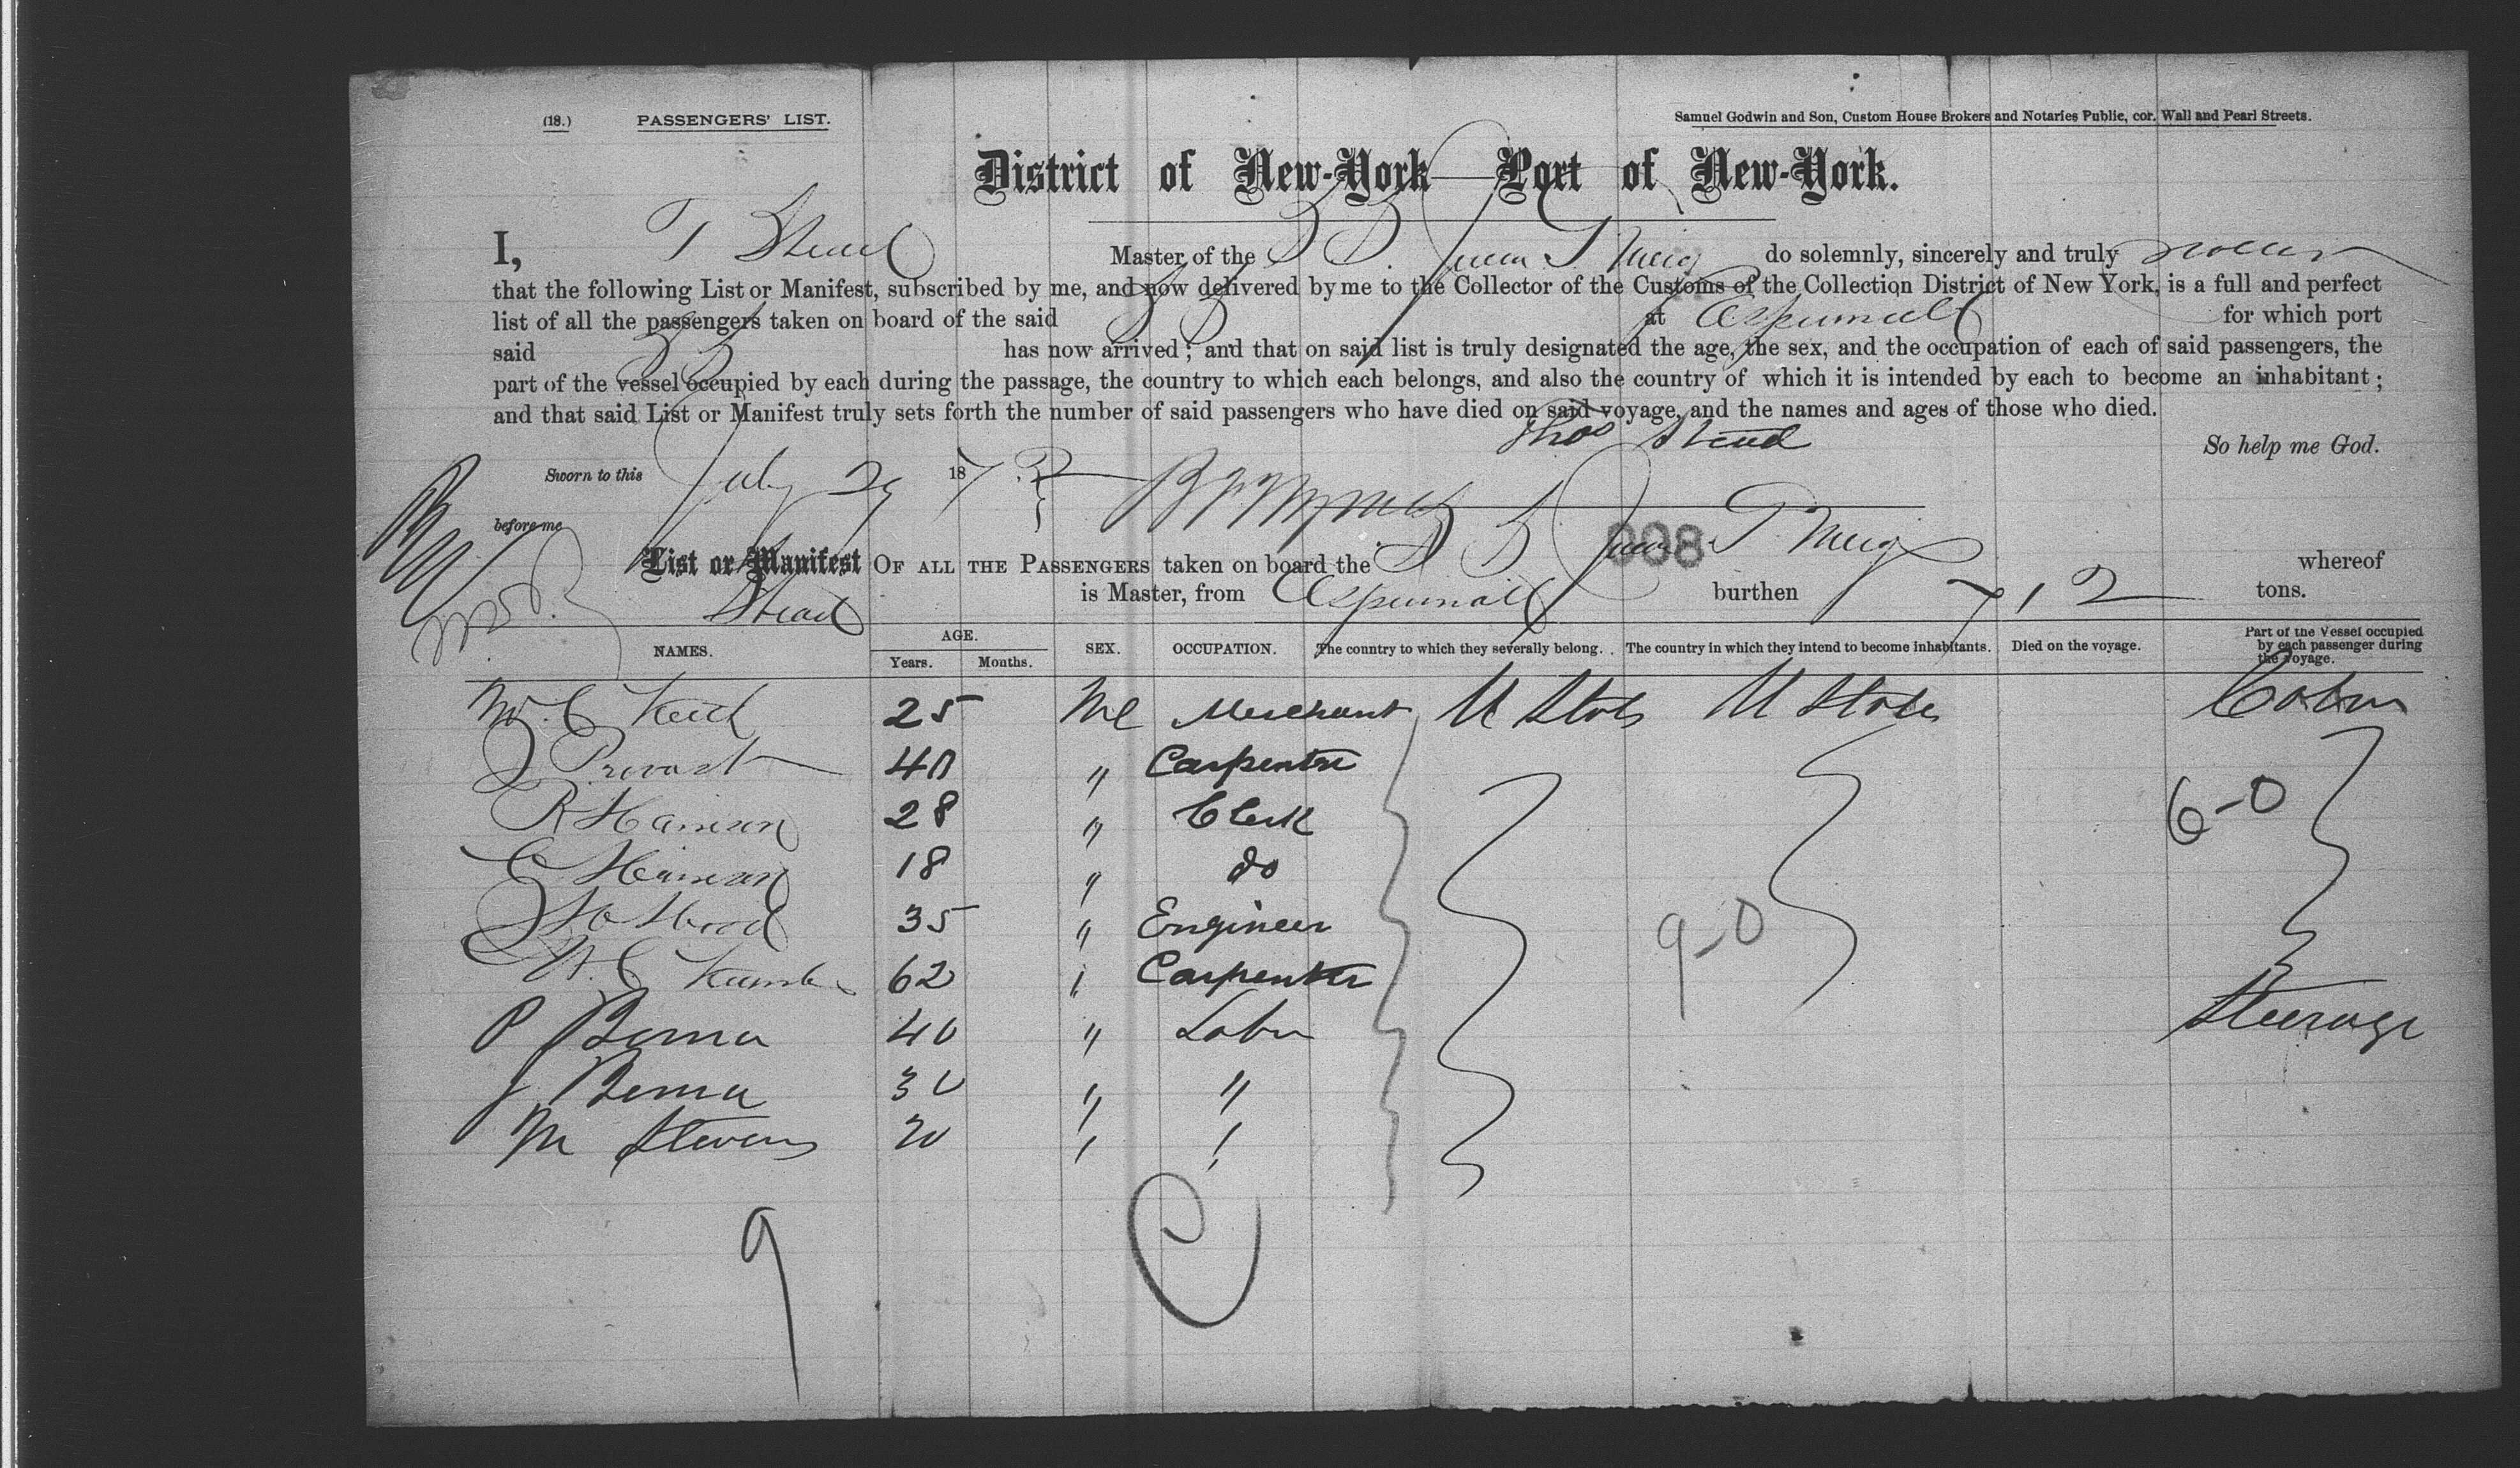 (18.) PASSENGERS' LIST.
Samuel Godwin and Son, Custom House Brokers and Notaries Public, cor. Wall and Pearl Streets.
District of New-York—Port of New-York.
I, T Stead Master of the S S do solemnly, sincerely and truly swear
that the following List or Manifest, subscribed by me, and now delivered by me to the Collector of the Customs of the Collection District of New York, is a full and perfect
list of all the passengers taken on board of the said S S at Aspinwall for which port
said S S has now arrived; and that on said list is truly designated the age, the sex, and the occupation of each of said passengers, the
part of the vessel occupied by each during the passage, the country to which each belongs, and also the country of which it is intended by each to become an inhabitant;
and that said List or Manifest truly sets forth the number of said passengers who have died on said voyage, and the names and ages of those who died.
Thos Stead
So help me God.
Sworn to this July 29 187
before me
008
List or Manifest OF ALL THE PASSENGERS taken on board the S S whereof
Stead is Master, from Aspinwall burthen 712 tons.
NAMES. AGE. Years. Months. SEX. OCCUPATION. The country to which they severally belong. The country in which they intend to become inhabitants. Died on the voyage. Part of the Vessel occupied by each passenger during the voyage.
C Keith 25 Me Merchant U States U States Cabin
J Provost 40 " Carpenter
R Harrison 28 " Clerk 6-0
C Harrison 18 " do
Wood 35 " Engineer 9-0
62 " Carpenter
P 40 " Labr Steerage
J 30 " "
M Stevens 20 " "
9